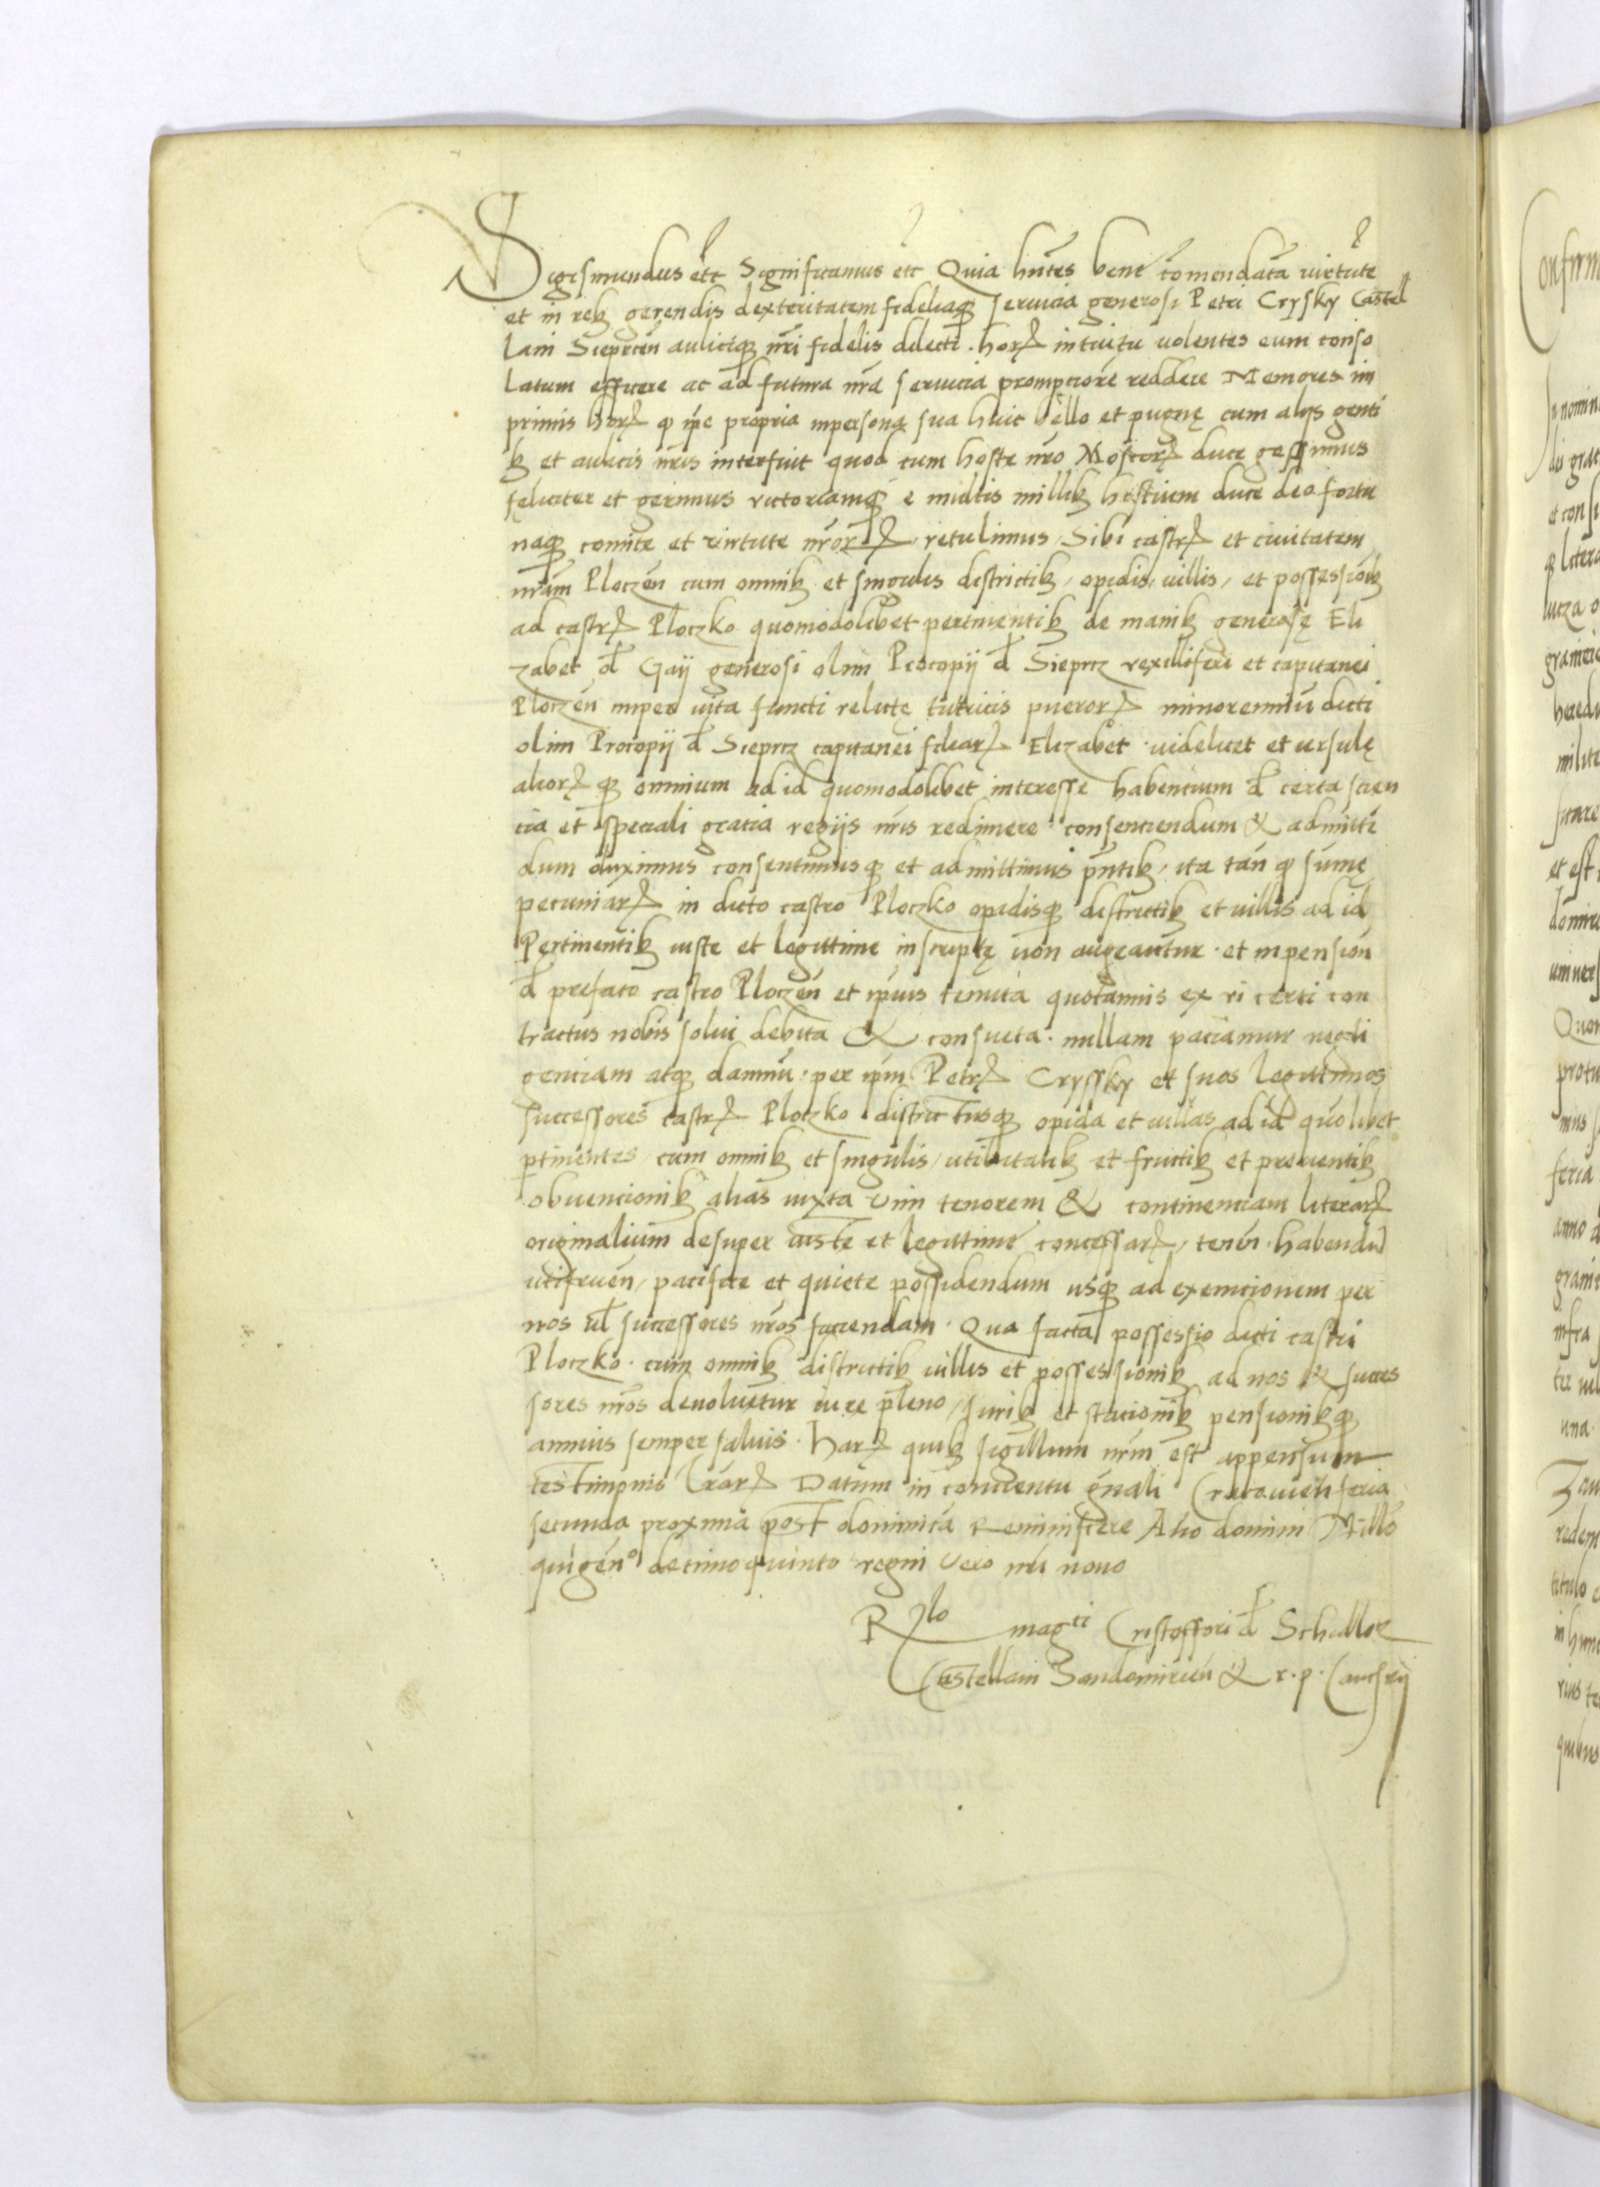 Sigismundus etc Significamus etc Quia hntes bene comendata virtute
et in reb gerendis dexteritatem fideliaq servicia generosi Petri Crysky Castel
lani Sieprcen aulicique nri fidelis dilecti. hor intuitu volentes eum conso
latum efficere ac ad futura nra servicia prompciore reddere Memores in
primis hor q ipe propria inpersona sua huic bello et pugnę cum alys genti
b et aulicis nris interfuit quod cum hoste nro Moscor duce gessimus
feliciter et gerimus victoriamq e multis millib hostium duce deo fortu
naq comite et virtute nror retulimus Sibi castr et civitatem
nram Ploczen cum omnib et singulis districtib, opidis, villis, et possessionib
ad castr Ploczko quomodolibet pertinentib de manib generosę Eli
zabet d Gaij generosi olim Procopij d Sieprcz vexilliferi et capitanei
Ploczen nuper vita functi relicte tutricis pueror minorenniu dicti
olim Procopij d Sieprcz capitanei filiar Elizabet videlicet et ursulę
alior q omnium ad id quomodolibet interesse habencium d certa scien
cia et speciali gracia regijs nris redimere consenciendum & admitti
dum duximus consentimusq et admittimus pntib, ita tan q sume
pecuniar in dicto castro Ploczko opidisq districtib et villis ad id
Pertinentib iuste et legittime inscriptę non augeantur. et inpension
d prefato castro Ploczen et ipius tenuta quotannis ex vi certi con
tractus nobis solui debita & consueta. nullam paciamur negli
genciam atq damnu. per ipm Petr Cryssky et suos legittimos
successores castr Ploczko districtusq opida et villas ad id quolibet
ptinentes, cum omnib et singulis, utilitatib et fructib et proventib
obvencionib alias iuxta vim tenorem & continenciam literar
originalium desuper iuste et legittime concessar, tenen. habendu
utifruen, pacifice et quiete possidendum usq ad exemcionem per
nos ul successores nros faciendam. Qua facta possessio dicti castri
Ploczko. cum omnib districtib villis et possessionib ad nos & succes
sores nros devoluetur iure pleno, Jurib et stacionib pensionibq
annuis semper salvis. Har quib sigillum nrm est appensum
testimonio lrar Datum in conventu gnali Cracovien feria
secunda proxima post dominica Reminiscere Ano domini Millo
quigen° decimoquinto regni vero nri nono
Rlo magci Cristoffori d Schidlow
Castellani Sandomirien & r. p. Cancrij